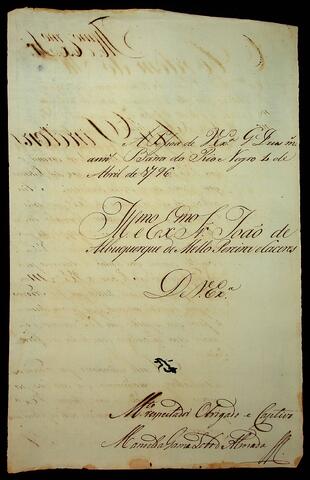 A Pessoa de V. Exa. Gde. Deos m.
ann.s Barra do Rio Negro 4 de
Abril de 1796
Illmo. e Exmo. Sr. João de
Albuquerque de Mello Pereira e Caceres
De V. Exa.
Mto. respeitador Obrigado e Captivo
Manoel da Gama Lobo de Almada